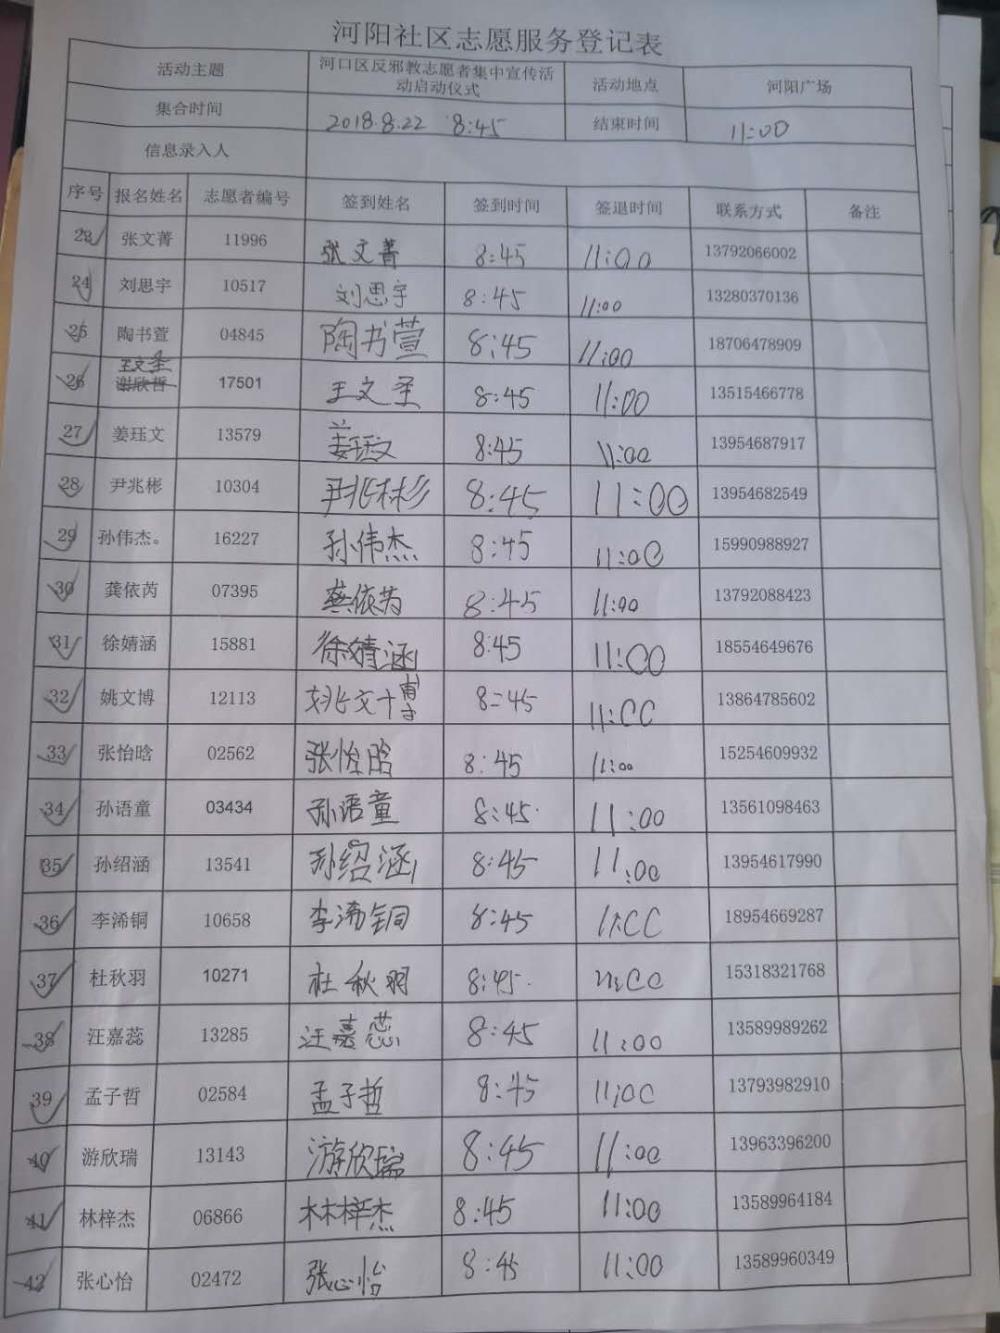 河阳社区志愿服务登记表
活动主题 河口区反邪教志愿者集中宣传活动启动仪式 活动地点 河阳广场
集合时间 2018.8.22 8:45 结束时间 11:00
信息录入人
序号 报名姓名 志愿者编号 签到姓名 签到时间 签退时间 联系方式 备注
23 张文菁 11996 张文菁 8:45 11:00 13792066002
24 刘思宇 10517 刘思宇 8:45 11:00 13280370136
25 陶书萱 04845 陶书萱 8:45 11:00 18706478909
王文圣
26 谢欣哲 17501 王文圣 8:45 11:00 13515466778
27 姜珏文 13579 姜珏文 8:45 11:00 13954687917
28 尹兆彬 10304 尹兆彬 8:45 11:00 13954682549
29 孙伟杰。 16227 孙伟杰 8:45 11:00 15990988927
30 龚依芮 07395 龚依芮 8:45 11:00 13792088423
31 徐婧涵 15881 徐婧涵 8:45 11:00 18554649676
32 姚文博 12113 姚文博 8:45 11:00 13864785602
33 张怡晗 02562 张怡晗 8:45 11:00 15254609932
34 孙语童 03434 孙语童 8:45 11:00 13561098463
35 孙绍涵 13541 孙绍涵 8:45 11:00 13954617990
36 李浠铜 10658 李浠铜 8:45 11:00 18954669287
37 杜秋羽 10271 杜秋羽 8:45 11:00 15318321768
38 汪嘉蕊 13285 汪嘉蕊 8:45 11:00 13589989262
39 孟子哲 02584 孟子哲 8:45 11:00 13793982910
40 游欣瑞 13143 游欣瑞 8:45 11:00 13963396200
41 林梓杰 06866 林梓杰 8:45 11:00 13589964184
42 张心怡 02472 张心怡 8:45 11:00 13589960349